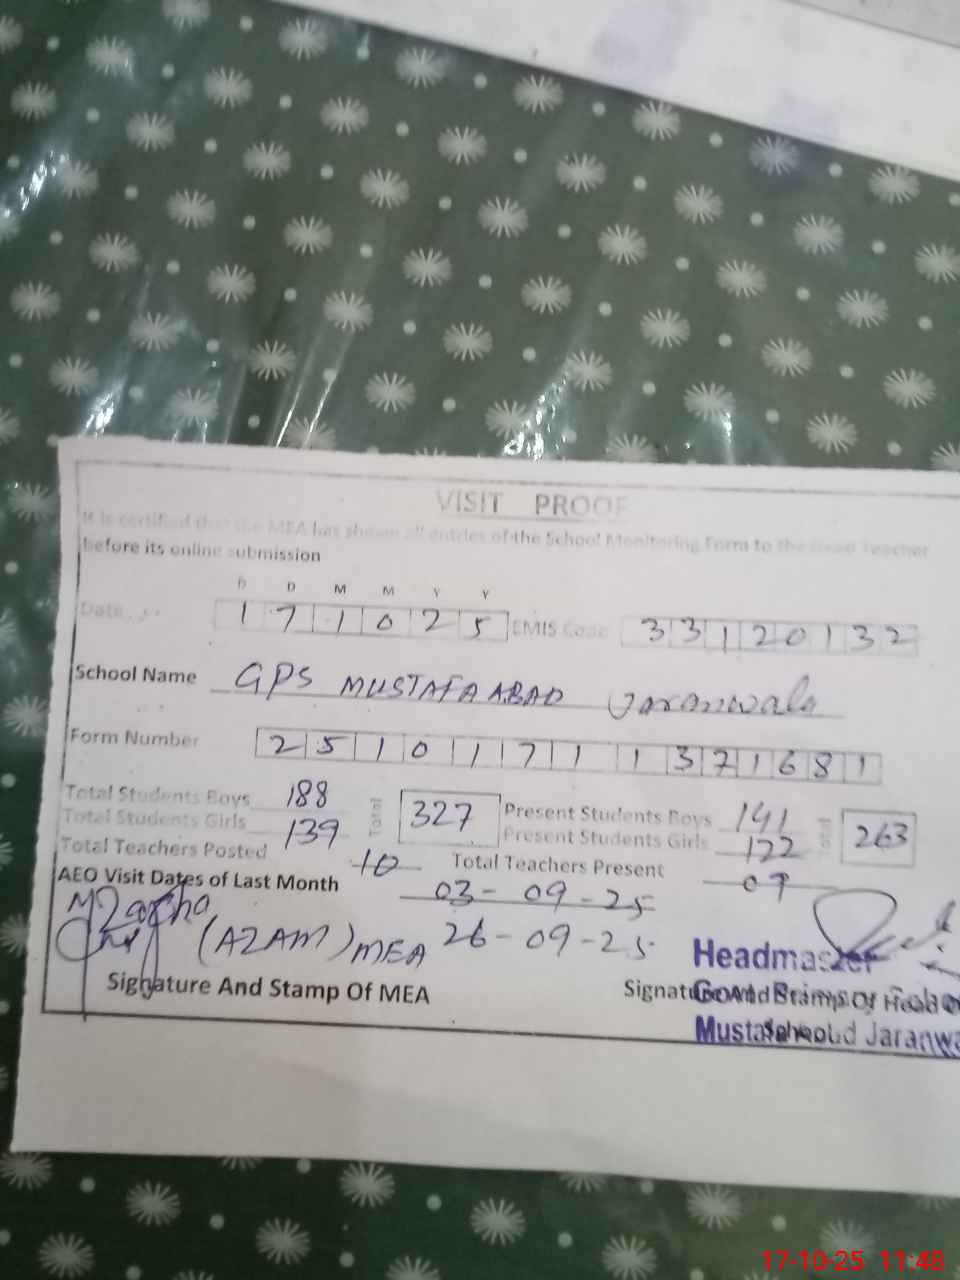 VISIT PROOF
It is certified that the MEA has shown all entries of the School Monitoring Form to the Head Teacher
before its online submission
D D M M Y Y
Date 1 7 1 0 2 5 EMIS Code 3 3 1 2 0 1 3 2
School Name GPS MUSTAFA ABAD Jaranwala
Form Number 2 5 1 0 1 7 1 1 3 7 1 6 8 1
Total Students Boys 188 Total 327 Present Students Boys 141 Total 263
Total Students Girls 139 Present Students Girls 122
Total Teachers Posted 10 Total Teachers Present 09
AEO Visit Dates of Last Month 03-09-25
(AZAM) MEA 26-09-25
Headmaster
Signature And Stamp Of MEA Signature And Stamp Of Head
Govt Primary
School
Jaranwa
17-10-25 11:48